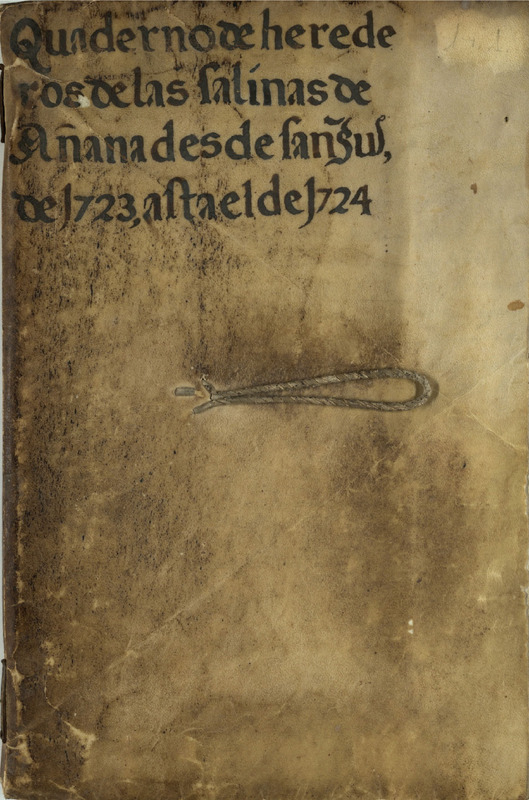 Quaderno de herede
ros de las salinas de
Añana desde san
de 1723, asta el de 1724